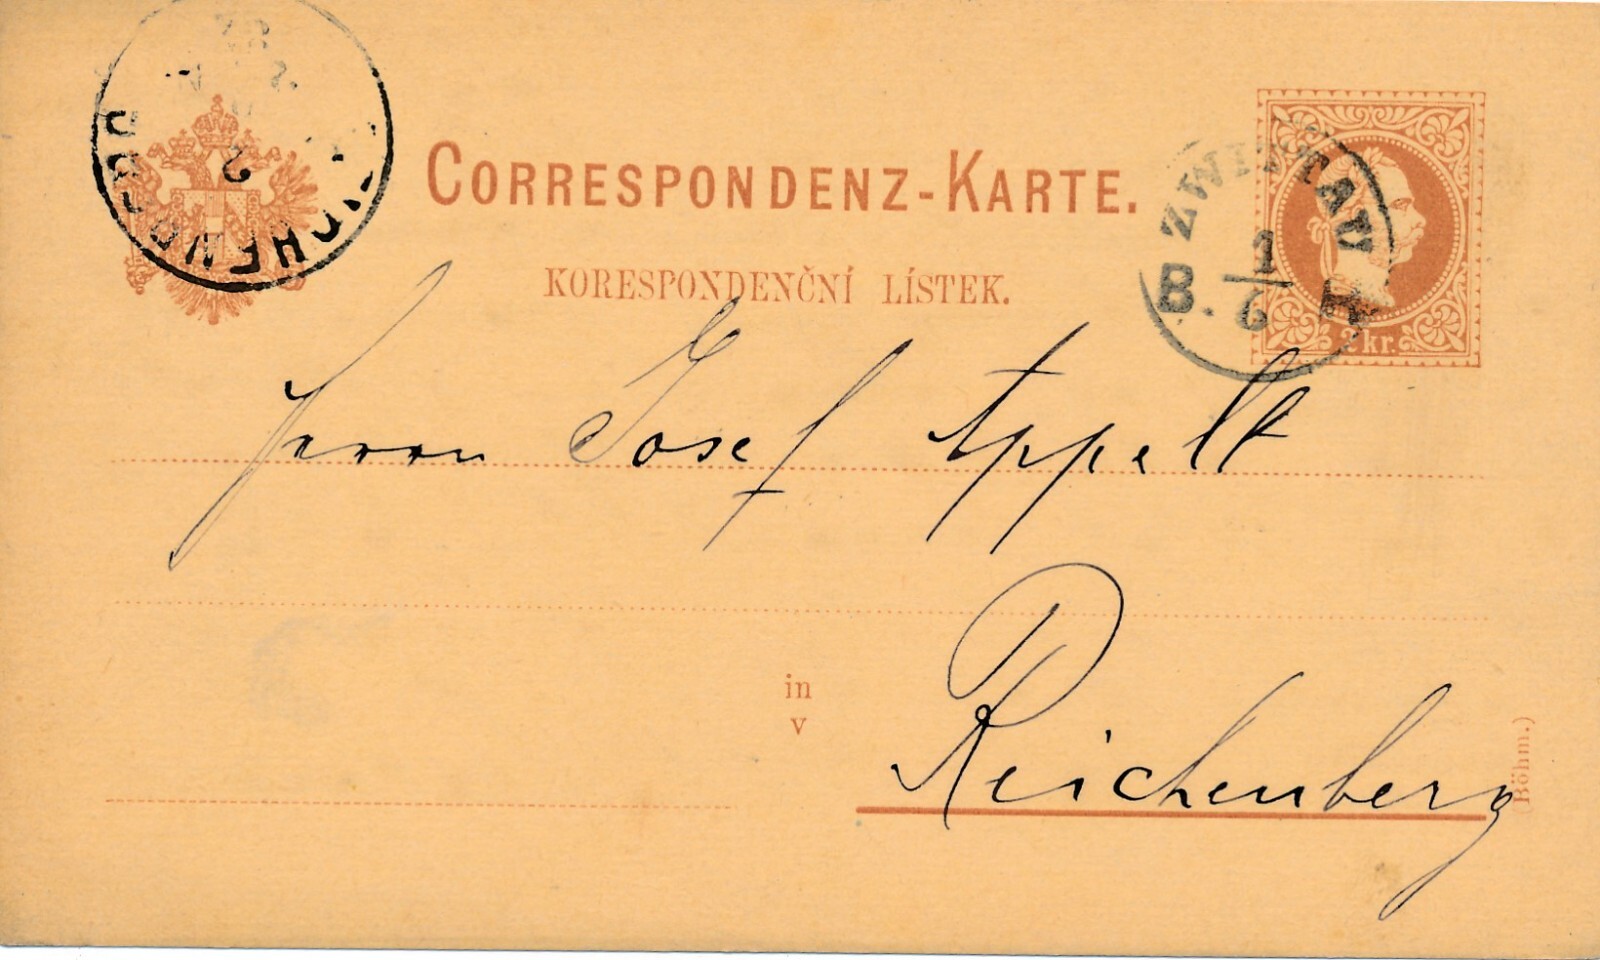 CORRESPONDENZ-KARTE.
KORESPONDENČNÍ LÍSTEK.
ZWITTAU
1/6
B.
2 kr.
Herrn Josef Appelt
in
v
Reichenberg
(Böhm.)